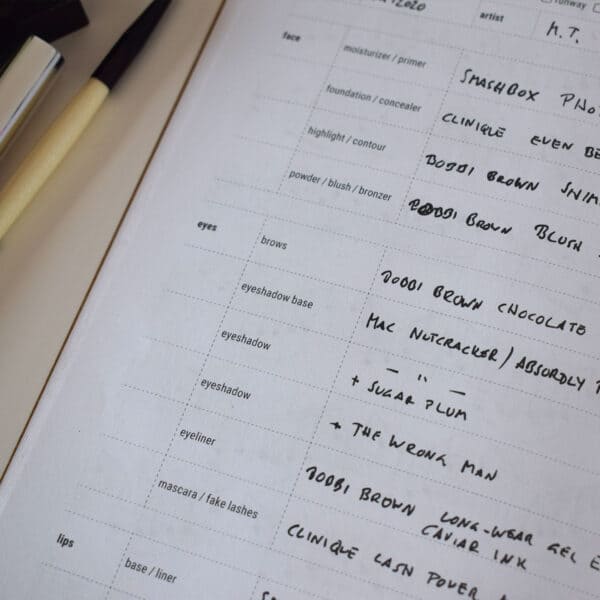 2020
artist
M.T.
face
moisturizer / primer
SMASHBOX
foundation / concealer
CLINIQUE EVEN BE
highlight / contour
BOBBI BROWN
powder / blush / bronzer
BOBBI BROWN BLUSH
eyes
brows
BOBBI BROWN CHOCOLATE
eyeshadow base
MAC NUTCRACKER / ABSORDLY
eyeshadow
— " —
+ SUGAR PLUM
eyeshadow
+ THE WRONG MAN
eyeliner
BOBBI BROWN LONG-WEAR GEL E
CAVIAR INK
mascara / fake lashes
CLINIQUE LASH POWER
lips
base / liner